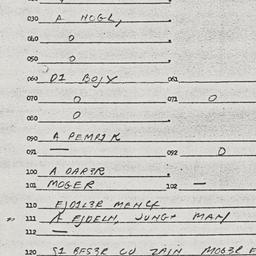 030 A NOGL,
040 0
050 0
060 DI BOJY 061
070 0 071 0
080 0
090 A PEMPIK
091 — 092 0
100 A DARER
101 MOGER 102 —
110 EJDELER MANCH
111 A EJDELN, JUNGA MAN
112 —
120 SI BESER CU ZAIN MOGER F